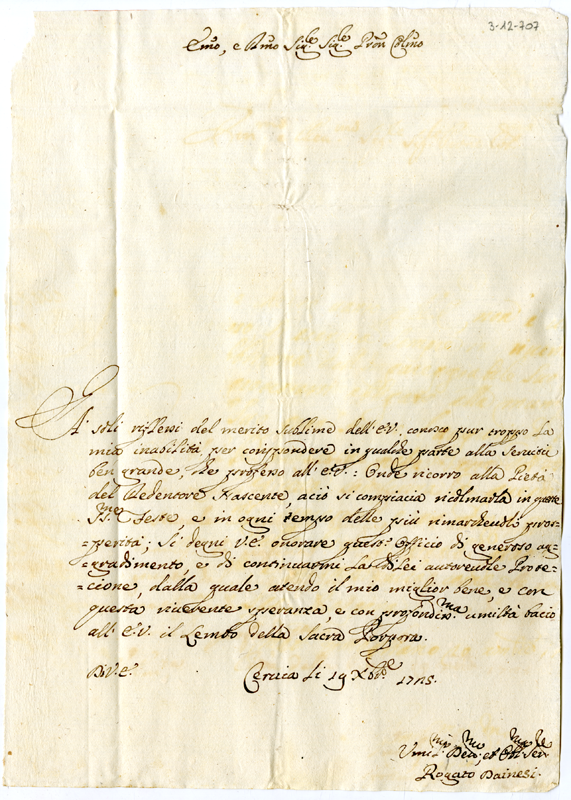 3-12-707
Emo, e Rmo Sigre Sigre Pron Colmo
A' soli riflessi del merito sublime dell'E.V. conosco pur troppo la
mia inabilità per corrispondere in qualche parte alla servitù
ben grande, che professo all'E.V.: Onde ricorro alla Pietà
del Redentore Nascente, acciò si compiaccia ricolmarla in queste
SSme Feste, e in ogni tempo delle più rimarchevoli pros=
=perità; Si degni V.E. onorare questo Officio di generoso ag=
=gradimento, e di continuarmi la di Lei autorevole Prote=
=cione, dalla quale attendo il mio miglior bene, e con
questa riverente speranza, e con profondissma umiltà bacio
all'E.V. il Lembo della Sacra Porpora.
D.V.E. Cervica li 19 Xbre 1715.
Umilmo Devmo, et Obbmo Serre
Rogato Dainesi.